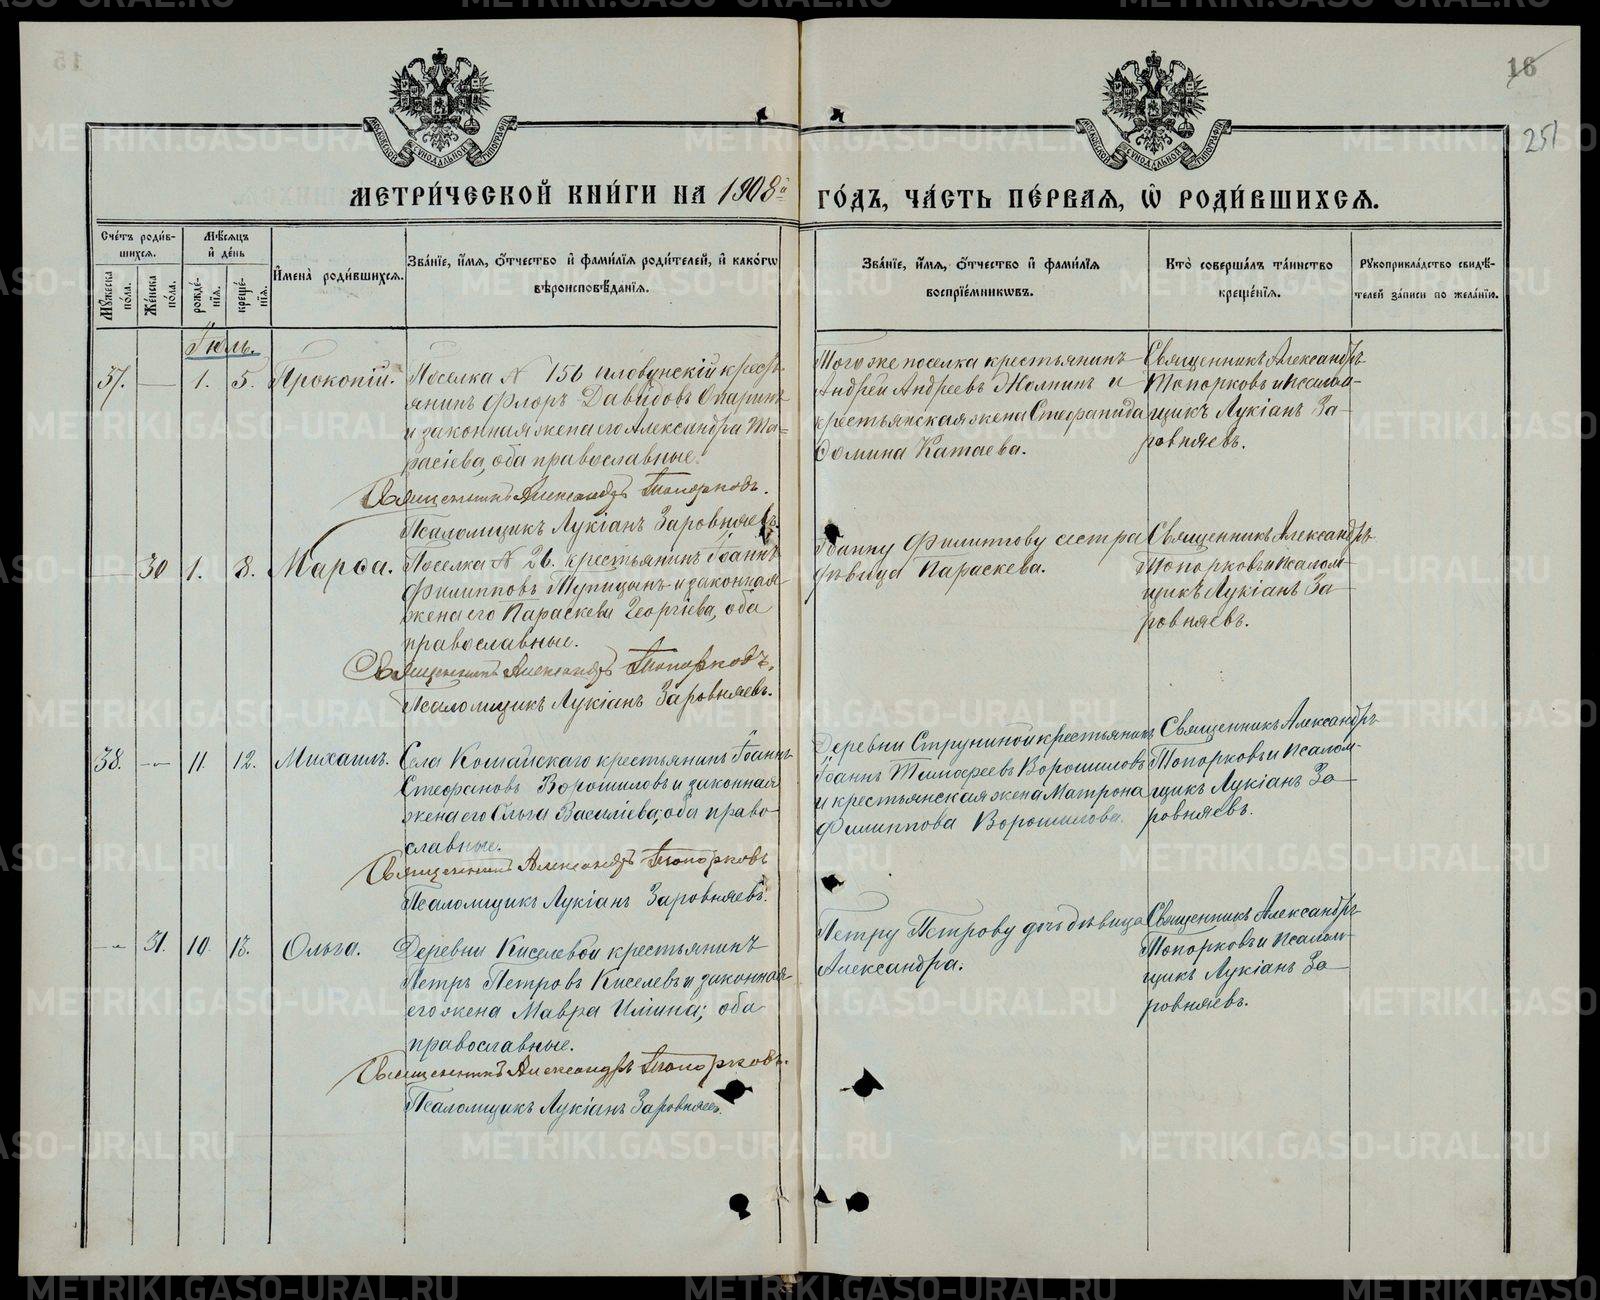 16
251
МЕТРИ́ЧЕСКОЙ КНИ́ГИ НА 1908й ГО́ДЪ, ЧА́СТЬ ПЕ́РВАЯ, Ѡ РОДИ́ВШИХСЯ.
Сче́тъ роди́в-
шихся.
Мѣ́сяцъ
и҆ де́нь
И҆мена̀ роди́вшихся.
Зва́нїе, и҆́мя, ѻ҆́тчество и҆ фами́лїѧ роди́телей, и҆ како́гѡ
вѣроисповѣ́данїѧ.
Зва́нїе, и҆́мя, ѻ҆́тчество и҆ фами́лїѧ
воспрїе́мникѡвъ.
Кто̀ соверша́лъ та́инство
креще́нїѧ.
Рꙋкоприкла́дство свидѣ́-
телей за́писи по жела́нїю.
Мꙋ́жеска
по́ла.
Же́нска
по́ла.
рожде́-
нїѧ.
креще́-
нїѧ.
Іюль.
37.
1.
5.
Прокопій.
Поселка № 156 Иловунскій кресть-
янинъ Флоръ Давидовъ Опаринъ
и законная жена его Александра Та-
расіева, оба православные.
Священникъ Александръ Топорковъ.
Псаломщикъ Лукіанъ Заровняевъ.
Того же поселка крестьянинъ
Андрей Андреевъ Жолнинъ и
крестьянская жена Стефанида
Фомина Катаева.
Священникъ Александръ
Топорковъ и псалом-
щикъ Лукіанъ За-
ровняевъ.
30
1.
8.
Марѳа.
Поселка № 26. крестьянинъ Іоаннъ
Филипповъ Тупицынъ и законная
жена его Параскева Георгіева, оба
православные.
Священникъ Александръ Топорковъ.
Псаломщикъ Лукіанъ Заровняевъ.
Іоанну Филиппову сестра
дѣвица Параскева.
Священникъ Александръ
Топорковъ и псалом-
щикъ Лукіанъ За-
ровняевъ.
38.
11.
12.
Михаилъ.
Села Кошайскаго крестьянинъ Іоаннъ
Стефановъ Ворошиловъ и законная
жена его Ольга Василіева, оба право-
славные.
Священникъ Александръ Топорковъ
Псаломщикъ Лукіанъ Заровняевъ.
Деревни Струниной крестьянинъ
Іоаннъ Тимофеевъ Ворошиловъ
и крестьянская жена Матрона
Филиппова Ворошилова.
Священникъ Александръ
Топорковъ и псалом-
щикъ Лукіанъ За-
ровняевъ.
31.
10.
13.
Ольга.
Деревни Киселевой крестьянинъ
Петръ Петровъ Киселевъ и законная
его жена Мавра Иліина; оба
православные.
Священникъ Александръ Топорковъ.
Псаломщикъ Лукіанъ Заровняевъ.
Петру Петрову дочь дѣвица
Александра.
Священникъ Александръ
Топорковъ и псалом-
щикъ Лукіанъ За-
ровняевъ.
METRIKI.GASO-URAL.RU